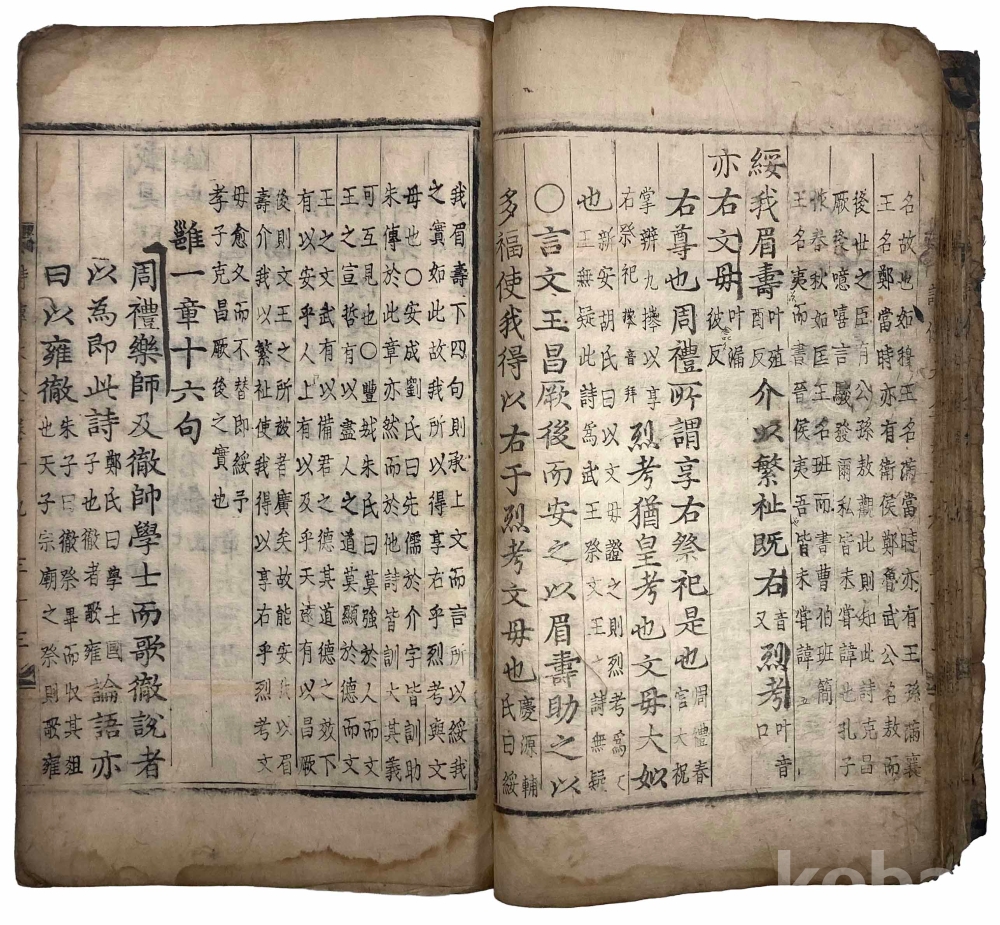 名故也如穆王名滿當時亦有王孫滿襄
王名鄭當時亦有衛侯鄭魯武公名敖而
後世之臣有公孫敖觀此則知此詩克昌
厥後噫嘻言駿發爾私皆未嘗諱也孔子
作春秋如匡王名班而書曹伯班簡
王名夷而書晉侯夷吾皆未嘗諱
綏我眉壽叶殖酉反介以繁祉既右音又烈考叶音口
亦右文毋叶滿彼反
右尊也周禮所謂享右祭祀是也周禮春官大祝
掌辨九㩲以享右祭祀㩲音拜烈考猶皇考也文毋大姒
也新安胡氏曰以文毋證之則烈考爲文王無疑此詩爲武王祭文王之詩無疑
〇言文王昌厥後而安之以眉壽助之以
多福使我得以右于烈考文毋也慶源輔氏曰綏
我眉壽下四句則承上文而言所以綏我
之實如此故我所以得享右乎烈考與文
毋也〇安成劉氏曰先儒於介字皆訓助
朱傳於此章亦然而於他詩皆訓大其義
可互見也〇豐城朱氏曰莫強於人而文
王之宣哲有以盡人之道莫顯於德而文
王之文武有以備君之德其道德之效下
有以安乎人上有以及乎天遠有以昌厥
後則文王之所被者廣矣故能安我以眉
壽介我以繁祉使我得以享右乎烈考文
毋愈久而不替即綏予
孝子克昌厥後之實也
雝一章十六句
周禮樂師及徹帥學士而歌徹說者
以為即此詩鄭氏曰學士國子也徹者歌雍論語亦
曰以雍徹朱子曰徹祭畢而收其俎也天子宗廟之祭則歌雍